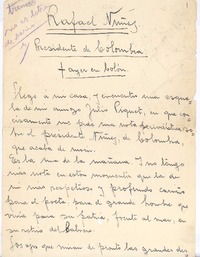 Rafael Núñez
Presidente de Colombia
+ ayer en Colón.
Llego a mi casa y encuentro una esque-
la de mi amigo Julio Piquet, en que con
cisamente me pide una nota necrológica so-
bre el presidente Núñez, de Colombia,
que acaba de morir.
Es la una de la mañana y no tengo
más nota en estos momentos que la de
mi más respetuoso y profundo cariño
para el poeta y para el grande hombre que
vivía para su patria, frente al mar, en
su retiro del Cabrero.
Los ojos que miran de pronto las grandes des